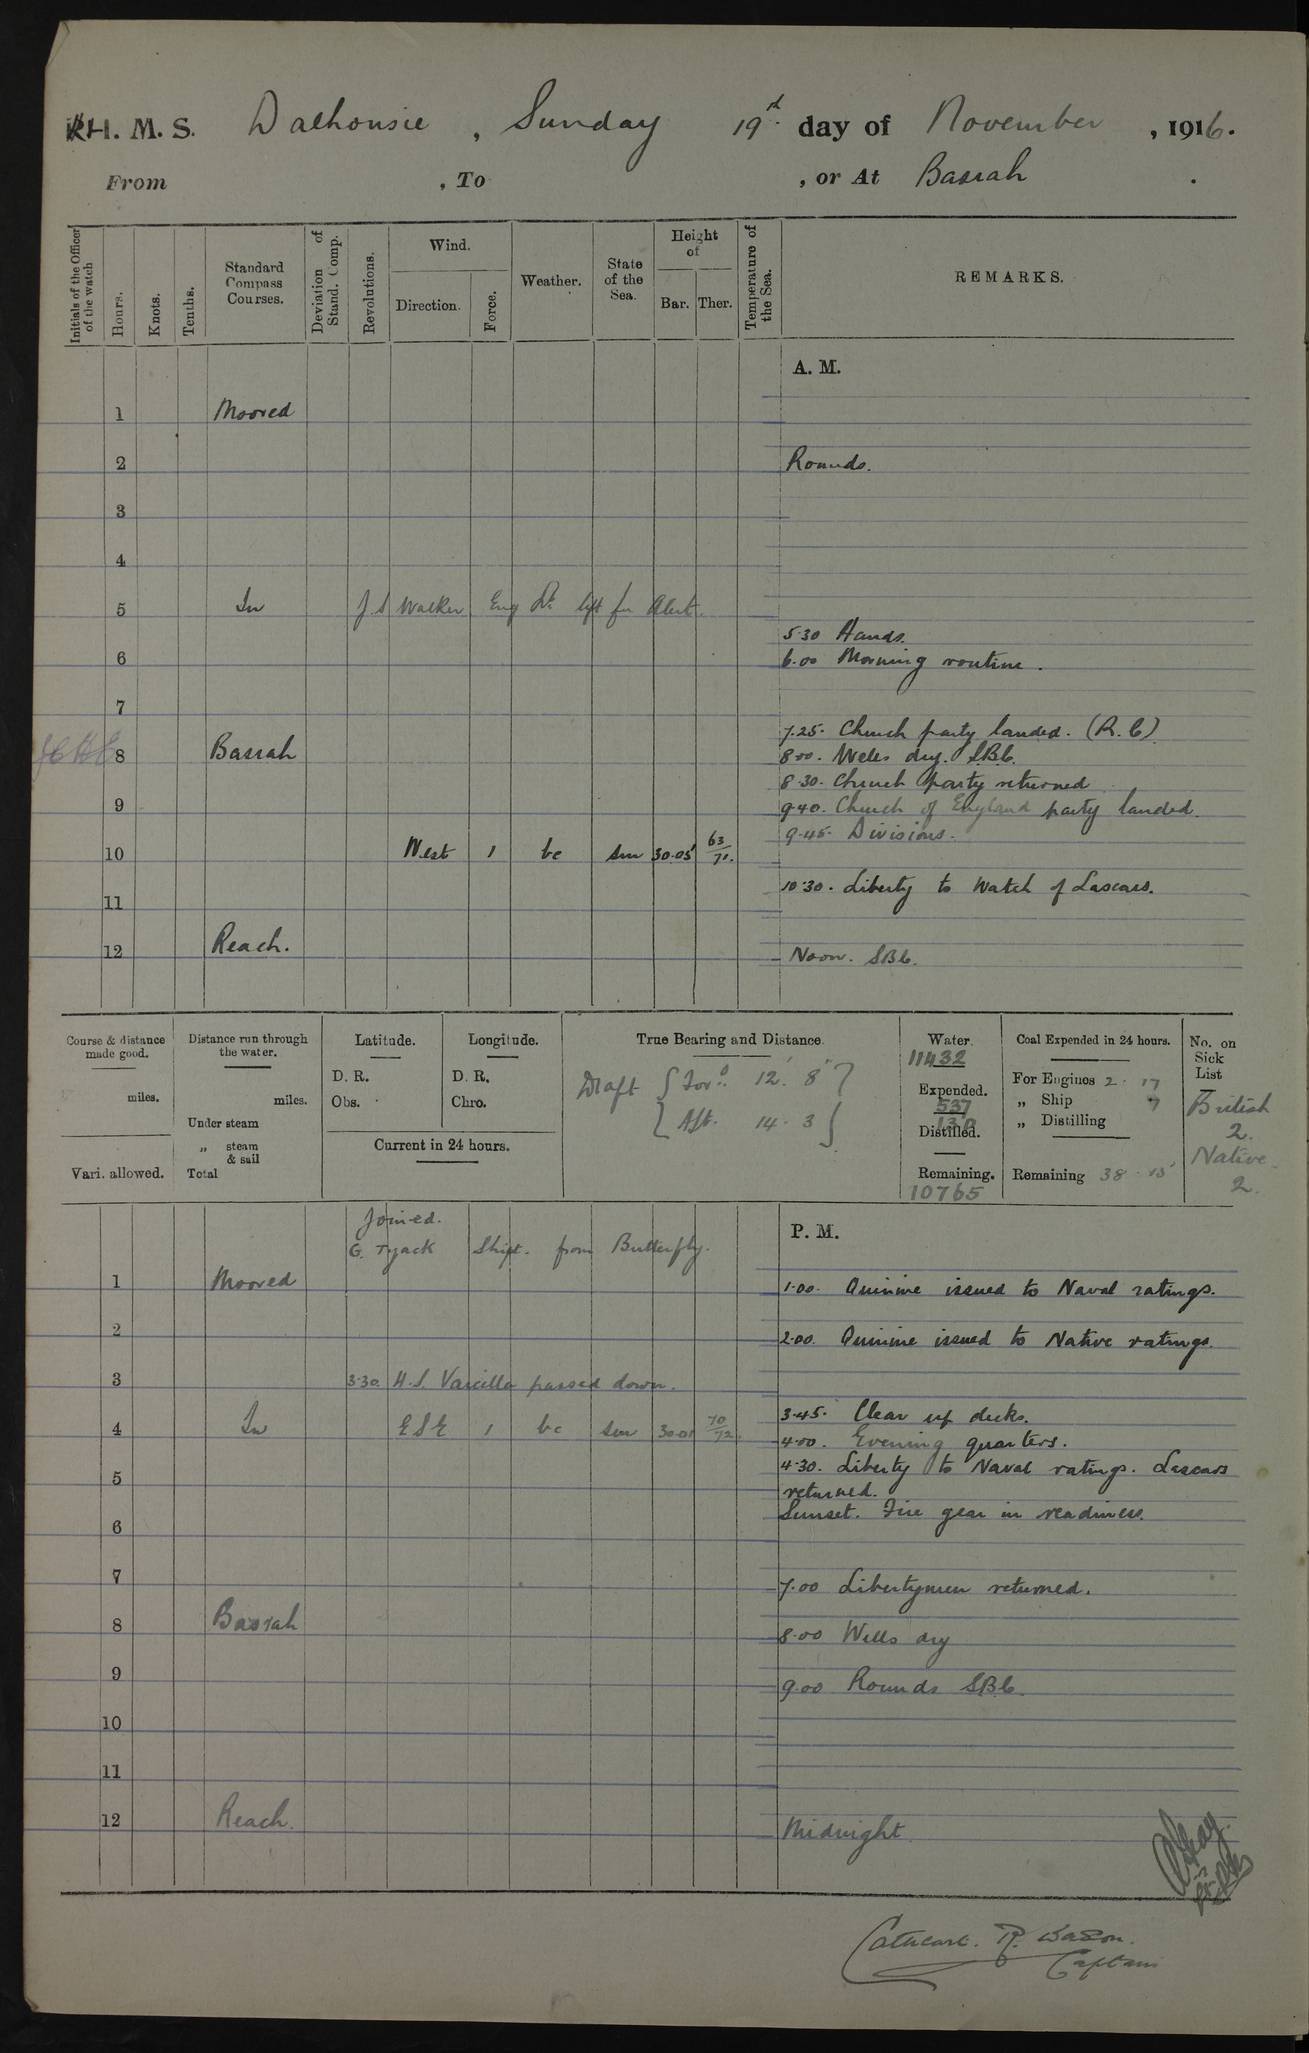 H. M. S. Dalhousie , Sunday 19th day of November , 1916.
From , To , or At Basrah .
Initials of the Officer of the watch
Hours.
Knots.
Tenths.
Standard Compass Courses.
Deviation of Stand. Comp.
Revolutions.
Wind.
Direction.
Force.
Weather.
State of the Sea.
Height of
Bar. Ther.
Temperature of the Sea.
REMARKS.
A. M.
1 Moored
2 Rounds.
3
4
5 In J. S Walker Eng Lt left for Alert.
5.30 Hands.
6 6.00 Morning routine.
7
7.25. Church party landed. (R. C)
8 Basrah 8.00. Wells dry. SBC.
8.30. Church party returned
9 9.40. Church of England party landed.
9.45. Divisions.
10 West 1 bc sm 30.05 63/71.
10.30. Liberty to Watch of Lascars.
11
12 Reach. Noon. SBC.
Course & distance made good.
miles.
Vari. allowed.
Distance run through the water.
miles.
Under steam
„ steam & sail
Total
Latitude.
D. R.
Obs.
Longitude.
D. R.
Chro.
Current in 24 hours.
True Bearing and Distance.
Draft { For'd. 12' 8" }
{ Aft. 14. 3 }
Water.
11432
Expended.
537
Distilled.
130
Remaining.
10765
Coal Expended in 24 hours.
For Engines 2. 17
„ Ship 7
„ Distilling
Remaining 38. 15
No. on Sick List
British
2.
Native
2.
P. M.
Joined.
G. Tyack Shipt. from Butterfly.
1 Moored 1.00. Quinine issued to Naval ratings.
2 2.00. Quinine issued to Native ratings.
3 3.30. H.S. Varcilla passed down.
3.45. Clear up decks.
4 In ESE 1 bc sm 30.01 70/72 4.00. Evening quarters.
4.30. Liberty to Naval ratings. Lascars
5 returned.
Sunset. Fire gear in readiness.
6
7 7.00 Libertymen returned.
8 Basrah 8.00 Wells dry
9 9.00 Rounds SBC.
10
11
12 Reach. Midnight
Cathcart. R. Wason.
Captain